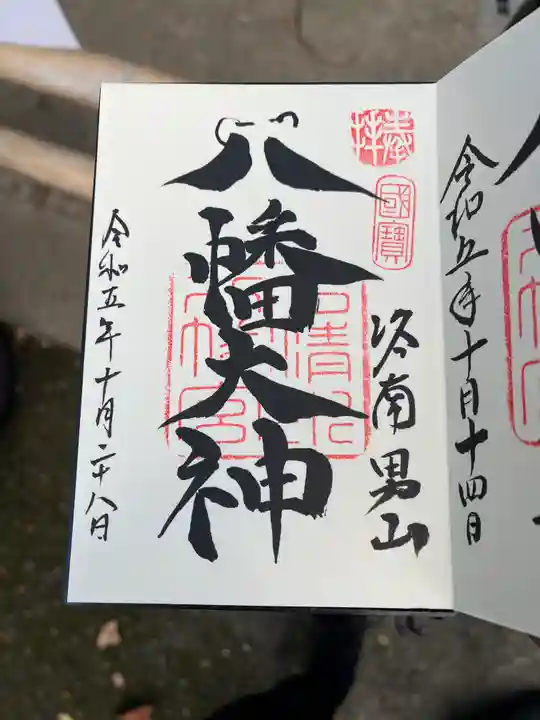 令和五年十月十四日
奉拝
國寶
洛南男山
八幡大神
石清水八幡宮
令和五年十月二十八日